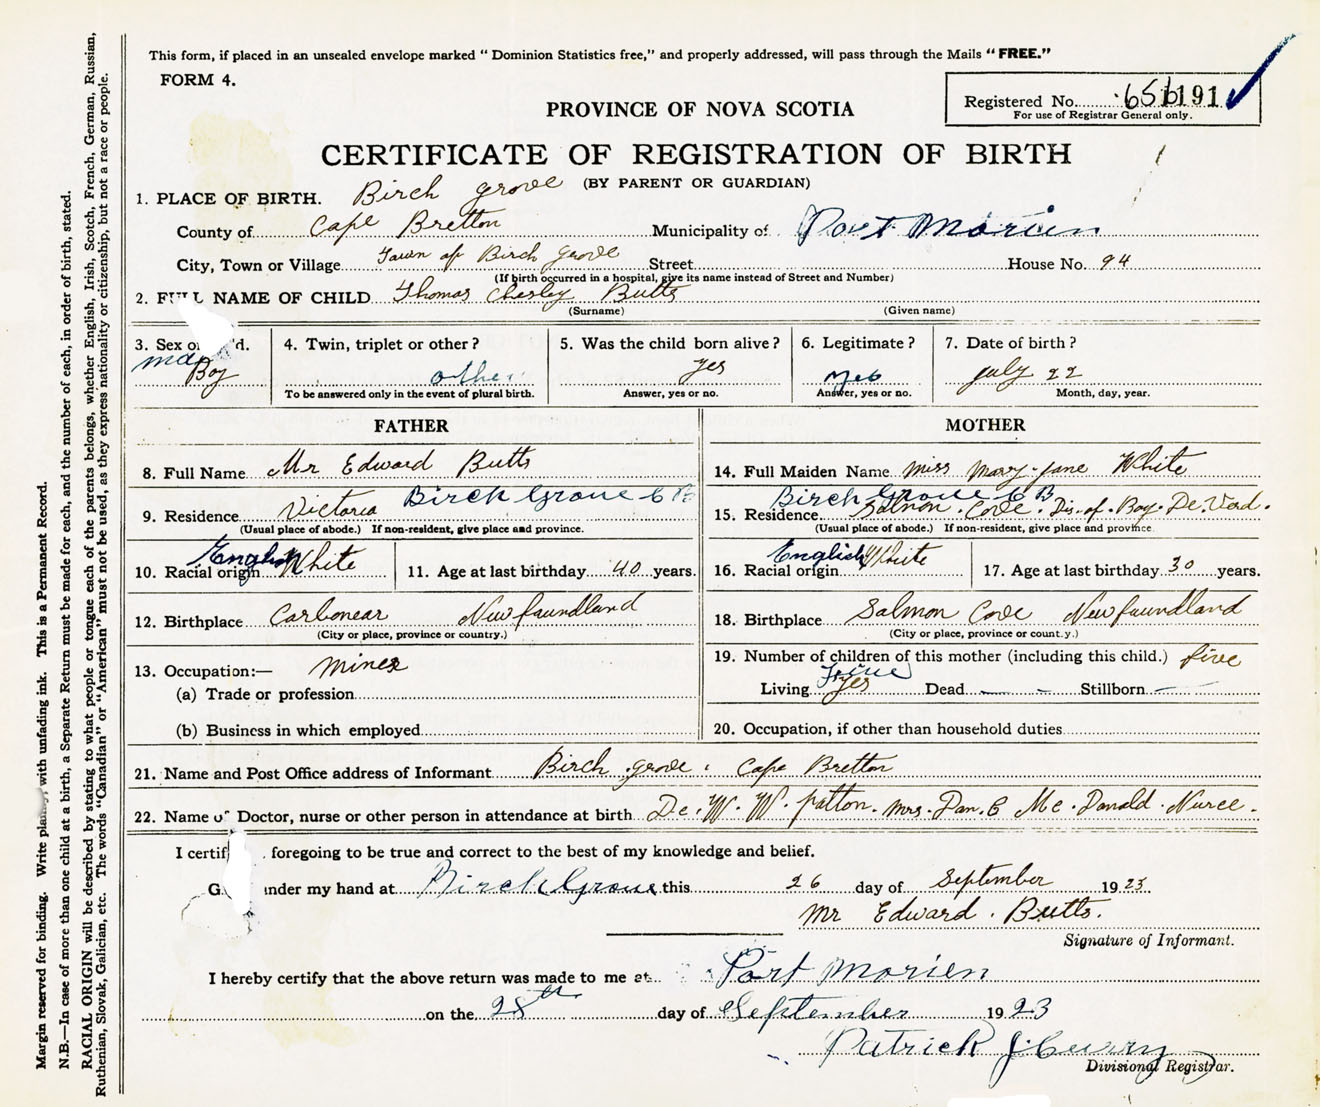 This form, if placed in an unsealed envelope marked "Dominion Statistics free," and properly addressed, will pass through the Mails "FREE."
FORM 4.
Registered No. 656191
For use of Registrar General only.
PROVINCE OF NOVA SCOTIA
CERTIFICATE OF REGISTRATION OF BIRTH
(BY PARENT OR GUARDIAN)
1. PLACE OF BIRTH. Birch grove
County of Cape Bretton Municipality of Port Morien
City, Town or Village Town of Birch grove Street House No. 94
(If birth occurred in a hospital, give its name instead of Street and Number)
2. FULL NAME OF CHILD Thomas Chesley Butts
(Surname) (Given name)
3. Sex of d. 4. Twin, triplet or other? 5. Was the child born alive? 6. Legitimate? 7. Date of birth?
male Boy other Yes Yes July 22
To be answered only in the event of plural birth. Answer, yes or no. Answer, yes or no. Month, day, year.
FATHER
8. Full Name Mr Edward Butts
Birch Grove C B
9. Residence Victoria
(Usual place of abode.) If non-resident, give place and province.
English
10. Racial origin White 11. Age at last birthday 40 years.
12. Birthplace Carbonear Newfaundland
(City or place, province or country.)
13. Occupation:— Miner
(a) Trade or profession
(b) Business in which employed
MOTHER
14. Full Maiden Name Miss Mary-Jane White
Birch Grove C B
15. Residence Salmon Cove. Dis. of. Bay. De. Verd.
(Usual place of abode.) If non-resident, give place and province.
English
16. Racial origin White 17. Age at last birthday 30 years.
18. Birthplace Salmon Cove Newfaundland
(City or place, province or country.)
19. Number of children of this mother (including this child.) five
Living Yes Dead — - Stillborn —
20. Occupation, if other than household duties
21. Name and Post Office address of Informant Birch grove. Cape Bretton
22. Name of Doctor, nurse or other person in attendance at birth De. W. W. Patton. Mrs. Dan. B Mc. Donald. Nurce.
I certif foregoing to be true and correct to the best of my knowledge and belief.
G under my hand at Birch Grove this 26 day of September 1923.
Mr Edward. Butts.
Signature of Informant.
I hereby certify that the above return was made to me at Port Morien
on the 28th day of September 1923
Patrick J Curry
Divisional Registrar.
Margin reserved for binding. Write plainly, with unfading ink. This is a Permanent Record.
N.B.—In case of more than one child at a birth, a Separate Return must be made for each, and the number of each, in order of birth, stated.
RACIAL ORIGIN will be described by stating to what people or tongue each of the parents belongs, whether English, Irish, Scotch, French, German, Russian,
Ruthenian, Slovak, Galician, etc. The words "Canadian" or "American" must not be used, as they express nationality or citizenship, but not a race or people.